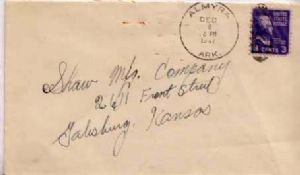 ALMYRA
DEC
PM
1947
ARK.
UNITED STATES
POSTAGE
3 CENTS 3
Shaw Mfg. Company
2611 Front Street
Galesburg, Kansas